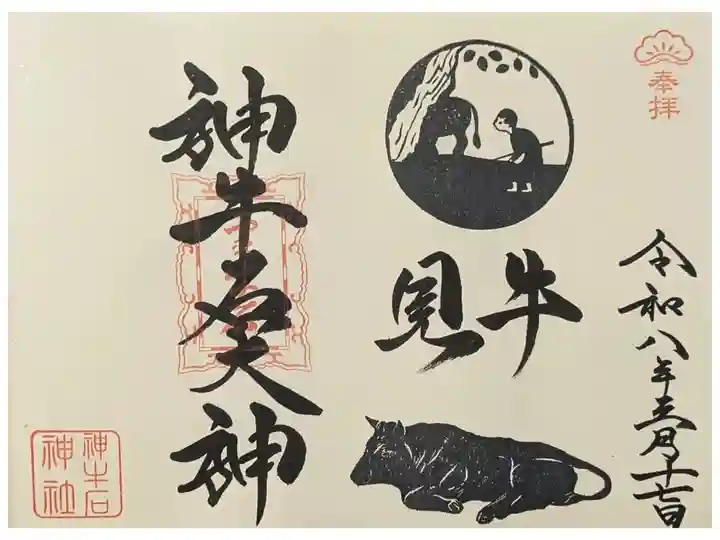 奉拝
令和八年五月十七日
見牛
神牛石大神
神牛石
神社